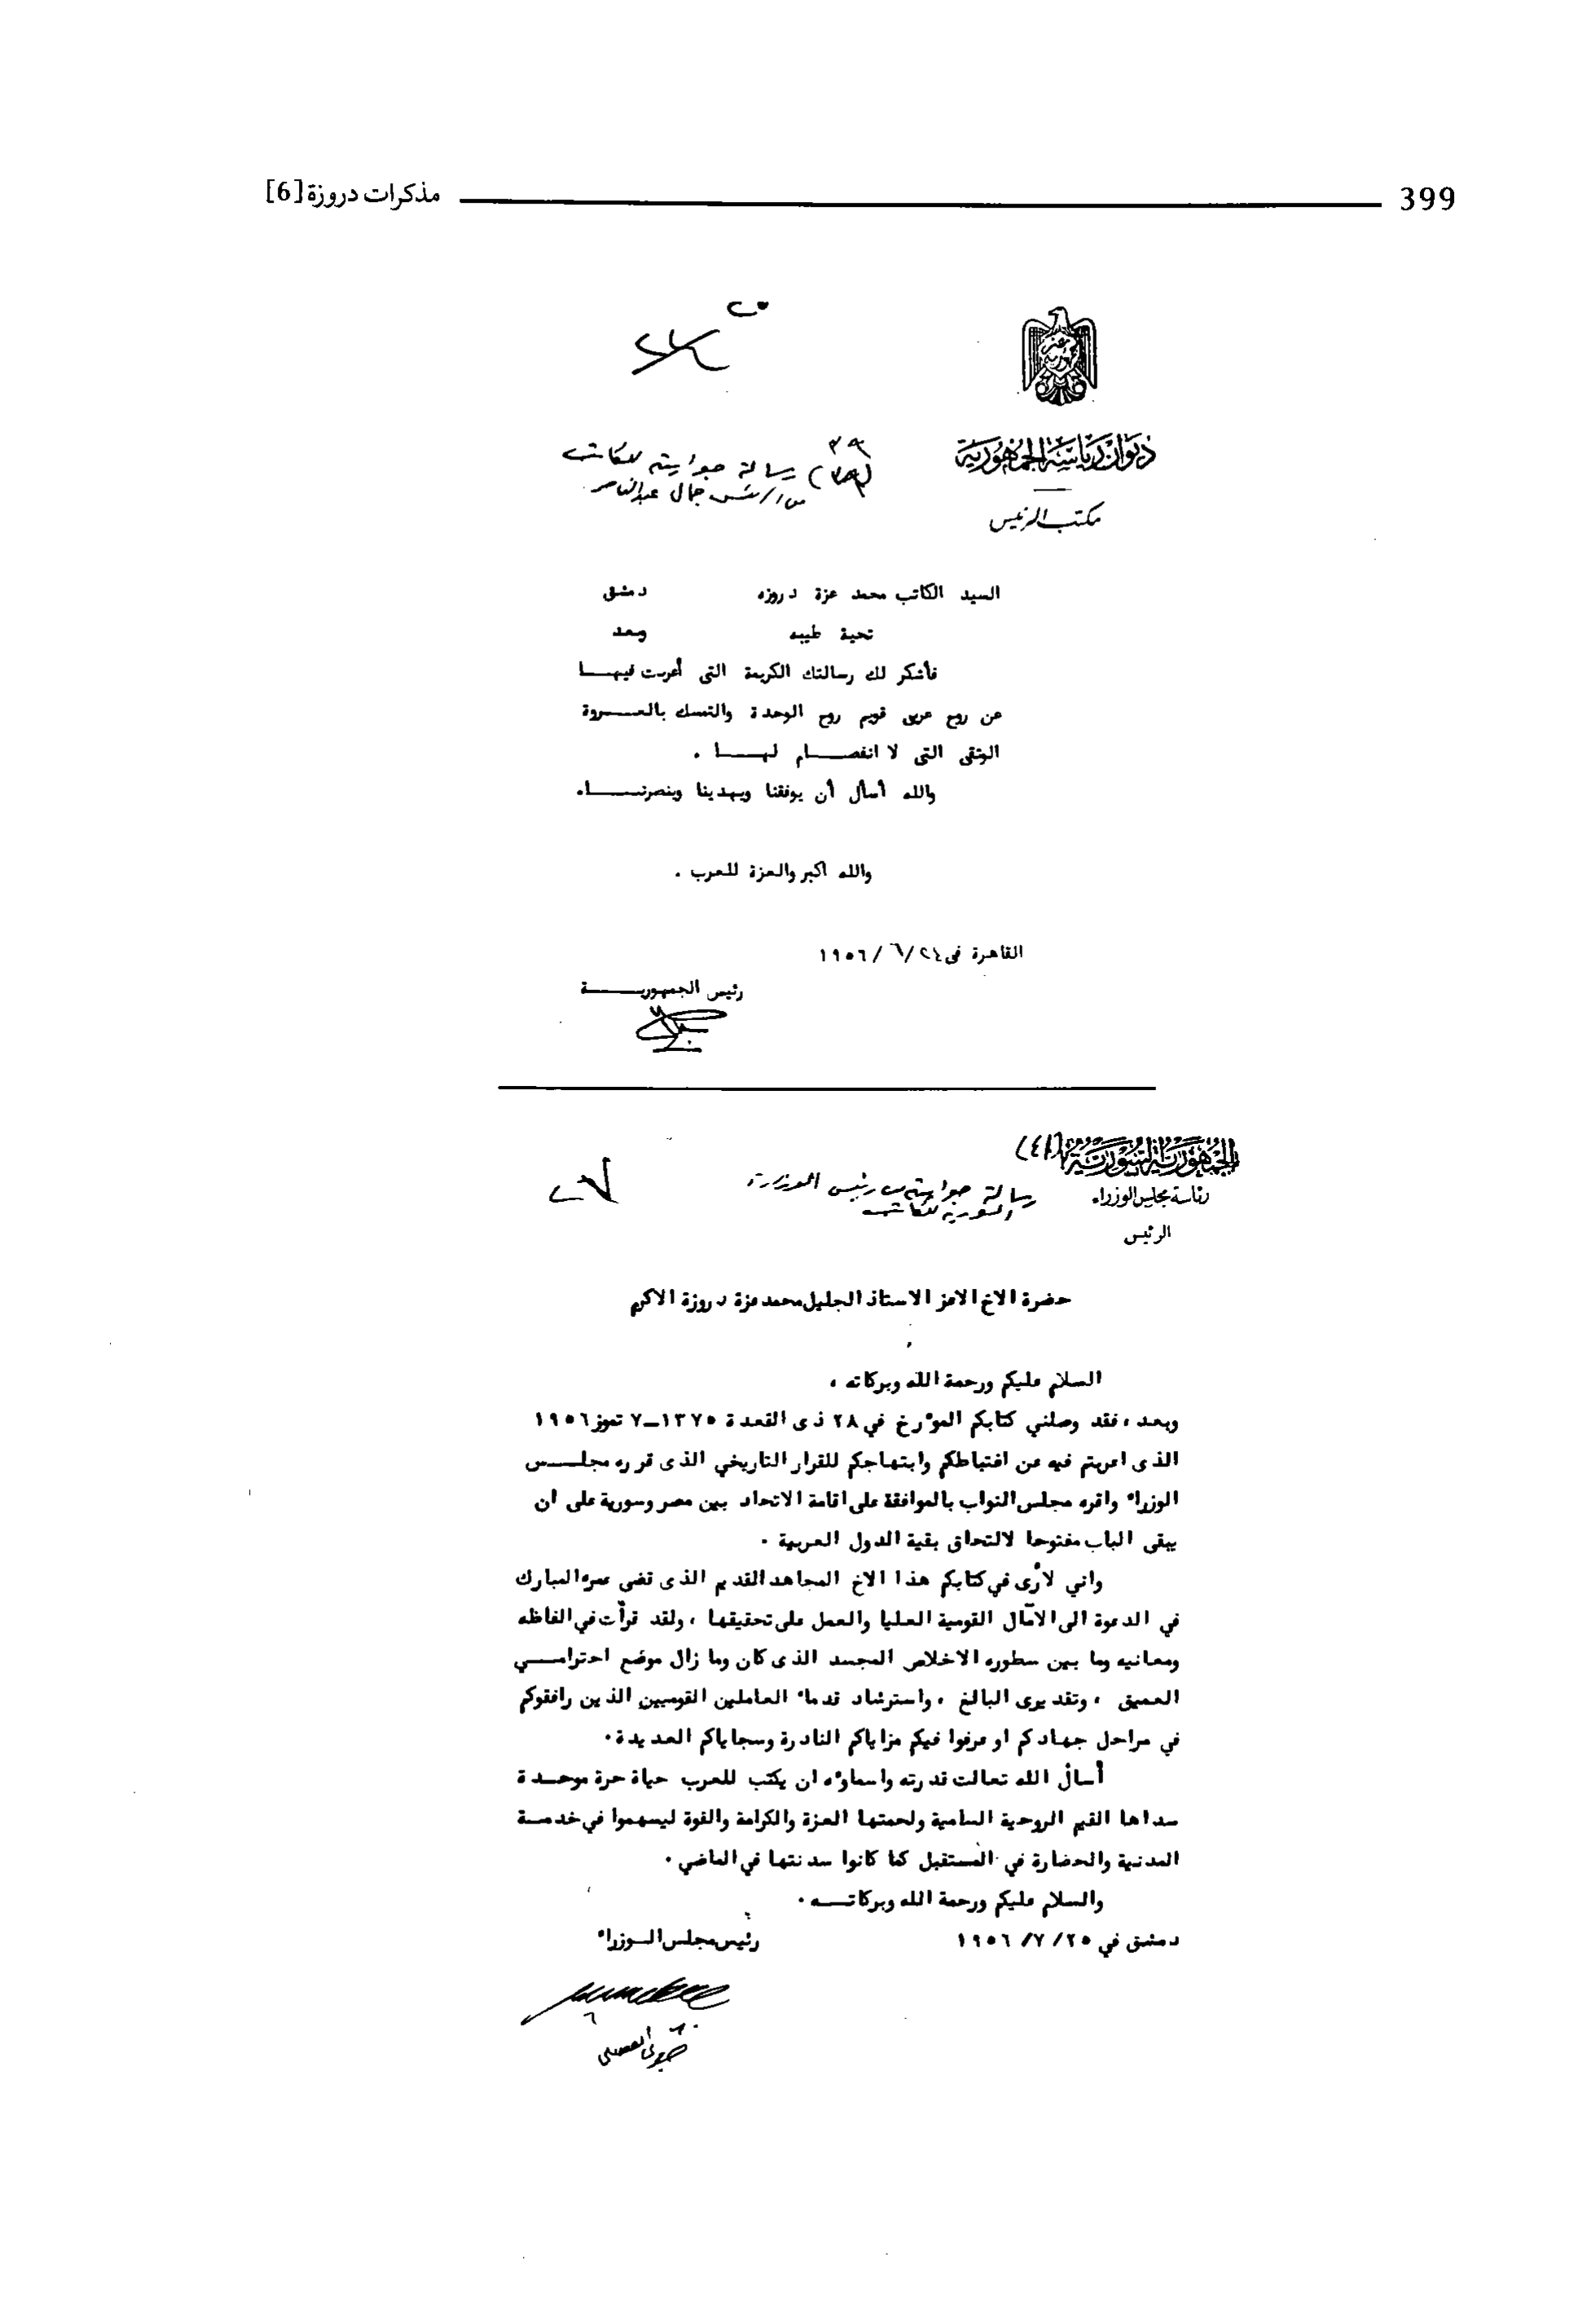 399 مذكرات دروزة [6]
ديوان رياسة الجمهورية
مكتب الرئيس
٣٩
رسالة جوابية للكاتب
من الرئيس جمال عبد الناصر
السيد الكاتب محمد عزة دروزه دمشق
تحية طيبه وبعد
فأشكر لك رسالتك الكريمة التى أعربت فيهـــا
عن روح عربى قويم روح الوحدة والتمسك بالعـــروة
الوثقى التى لا انفصــــام لهــــا .
والله أسأل أن يوفقنا ويهدينا وينصرنــــا.
والله اكبر والعزة للعرب .
القاهرة فى ٢٤/٦/١٩٥٦
رئيس الجمهوريــــة
الجمهورية السورية (٤١)
رئاسة مجلس الوزراء
الرئيس
رسالة جوابية من رئيس الوزارة
السورية للكاتب
حضرة الاخ الاعز الاستاذ الجليل محمد عزة دروزة الاكرم
السلام عليكم ورحمة الله وبركاته ،
وبعد ، فقد وصلني كتابكم المؤرخ في ٢٨ ذى القعدة ١٣٧٥ــ٧ تموز ١٩٥٦
الذى اعربتم فيه عن اغتباطكم وابتهاجكم للقرار التاريخي الذى قرره مجلـــس
الوزراء واقره مجلس النواب بالموافقة على اقامة الاتحاد بين مصر وسورية على ان
يبقى الباب مفتوحا لالتحاق بقية الدول العربية .
واني لأرى في كتابكم هذا الاخ المجاهد القديم الذى قضى عمره المبارك
في الدعوة الى الآمال القومية العليا والعمل على تحقيقها ، ولقد قرأت في الفاظه
ومعانيه وما بين سطوره الاخلاص المجسد الذى كان وما زال موضع احترامـــي
العميق ، وتقديرى البالغ ، واسترشاد قدماء العاملين القوميين الذين رافقوكم
في مراحل جهادكم او عرفوا فيكم مزاياكم النادرة وسجاياكم العديدة.
أسأل الله تعالت قدرته واسماؤه ان يكتب للعرب حياة حرة موحـــدة
سداها القيم الروحية السامية ولحمتها العزة والكرامة والقوة ليسهموا في خدمـــة
المدنية والحضارة في المستقبل كما كانوا سدنتها في الماضي .
والسلام عليكم ورحمة الله وبركاتـــه .
دمشق في ٢٥/٧/١٩٥٦ رئيس مجلس الــوزراء